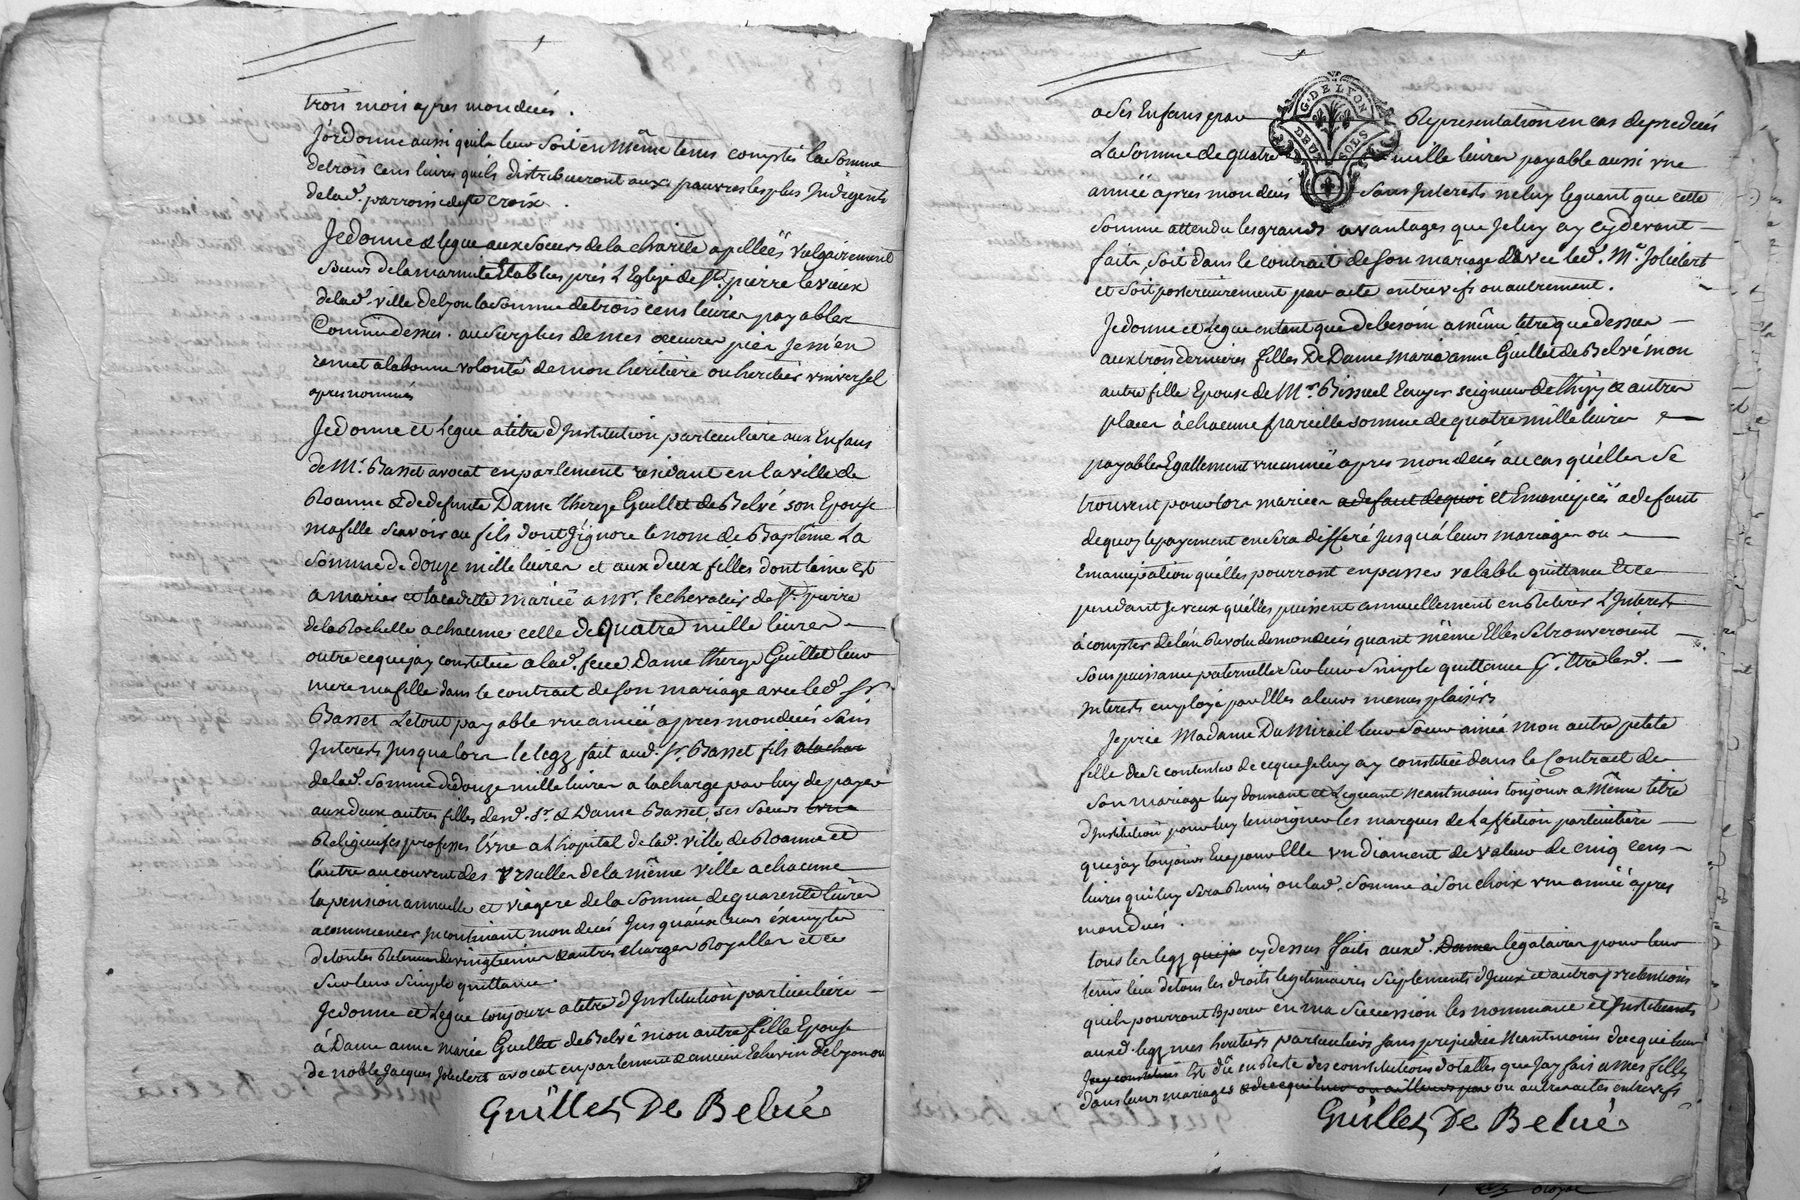 trois mois apres mon decés.
J'ordonne aussi quil leur soit en même tems comptés la somme
de trois cens livres quils distribueront aux pauvres les plus Indigents
de lad. parroisse de ste croix.
Je donne & legue aux soeurs de la charité apellées vulgairement
soeurs de la marmite Etablies prés L'Eglize de st. pierre le vieux
de lad. ville de Lyon la somme de trois cens livres payables
Comme dessus. au surplus de mes oeuvres pies Je m'en
remet a la bonne volonté de mon heritiere ou heritier universel
apres nommés
Je donne et Legue a titre d'Institution particuliere aux Enfans
de Mr. Basset avocat en parlement residant en la ville de
Roanne & de defunte Dame Thereze Guillet de Belvé son Epouse
ma fille sçavoir au fils dont J'ignore le nom de Baptême La
somme de douze mille livres et aux deux filles dont laine est
a marier et la cadette mariée a mr. le chevalier de st. pierre
de la Rochelle a chacune celle de quatre mille livres
outre ce que jay constitué a lad. feue Dame thereze Guillet leur
mere ma fille dans le contrait de son mariage avec led. Sr.
Basset Le tout payable une année apres mon decés sans
Interests Jusqualors le legz fait aud. Sr. Basset fils a la char
de lad. somme de douze mille livres a la charge par luy de payer
aux deux autres filles desd. Sr. & Dame Basset, ses soeurs
Religieuses professes l'une a L'hopital de lad. ville de Roanne et
l'autre au couvent des Ursulles de la même ville a chacune
la pension annuelle et viagere de la somme de quarente livres
a commencer Incontinant mon decés Jusqu'aux leurs éxempte
de toutes Retenues de vingtiemes & autres charges Royalles et ce
sur leur simple quittance.
Je donne et Legue toujours a titre d'Institution particuliere
à Dame anne Marie Guillet de Belvé mon autre fille Epouse
de noble Jacques Jolielert avocat en parlement & ancien Echevin de Lyon ou
Guillet De Belvé
a ses Enfans par Representation en cas de predecés
G. DE LYON
DEUX SOLS
La somme de quatre mille livres payable aussi une
année apres mon decés sans Interests ne luy leguant que cette
somme attendu les grands avantages que Je luy ay cy devant
faits, soit dans le contrait de son mariage avec led. Mr. Jolielert
et soit posterieurement par acte entrevifs ou autrement.
Je donne et Legue en tant que de besoin a même titre que dessus
aux trois dernieres filles De Dame Marie anne Guillet de Belvé mon
autre fille Epouse de Mr. Bissuel Ecuyer seigneur de Thizy & autres
places à chacune pareille somme de quatre mille livres
payables Egallement une année apres mon decés au cas qu'elles se
trouvent pour lors mariées a defaut dequoi et Emancipées a defaut
de quoy le payement en sera differé Jusqu'a leurs mariages ou
Emancipation qu'elles pourront en passer valable quittance et ce
pendant Je veux qu'elles puissent annuellement en Retirer L'Interest
à compter de l'an Revolu de mon decés quant même Elles se trouveroient
sous puissance paternelle sur leur simple quittance Pr. Etre lesd.
Interests employé par Elles a leurs menus plaisirs
Je prie Madame Du Mirail leur soeur ainée mon autre petite
fille de se contenter de ce que Je luy ay constitué dans le Contrait de
son mariage luy donnant et Leguant neantmoins toujours a même titre
d'Institution pour luy temoigner les marques de L'affection particuliere
que jay toujours Eue pour Elle un diament de valeur de cinq cens
livres qui luy sera Remis ou lad. somme à son choix une année apres
mon decés.
tous les legz que jay cy dessus faits auxd. Dames legataires pour leur
tenir lieu de tous les droits legitimaires suplements d'Iceux et autres pretentions
quils pourront Esperer en ma succession les nommant et Instituants
auxd. legz mes heritiers particuliers sans prejudice neantmoins de ce qui leur
Jay constitué Est dû en Reste des constitutions dotalles que Jay fait a mes filles
dans leurs mariages & de ce qui leur ou ailleurs par ou autres actes entrevifs
Guillet De Belvé